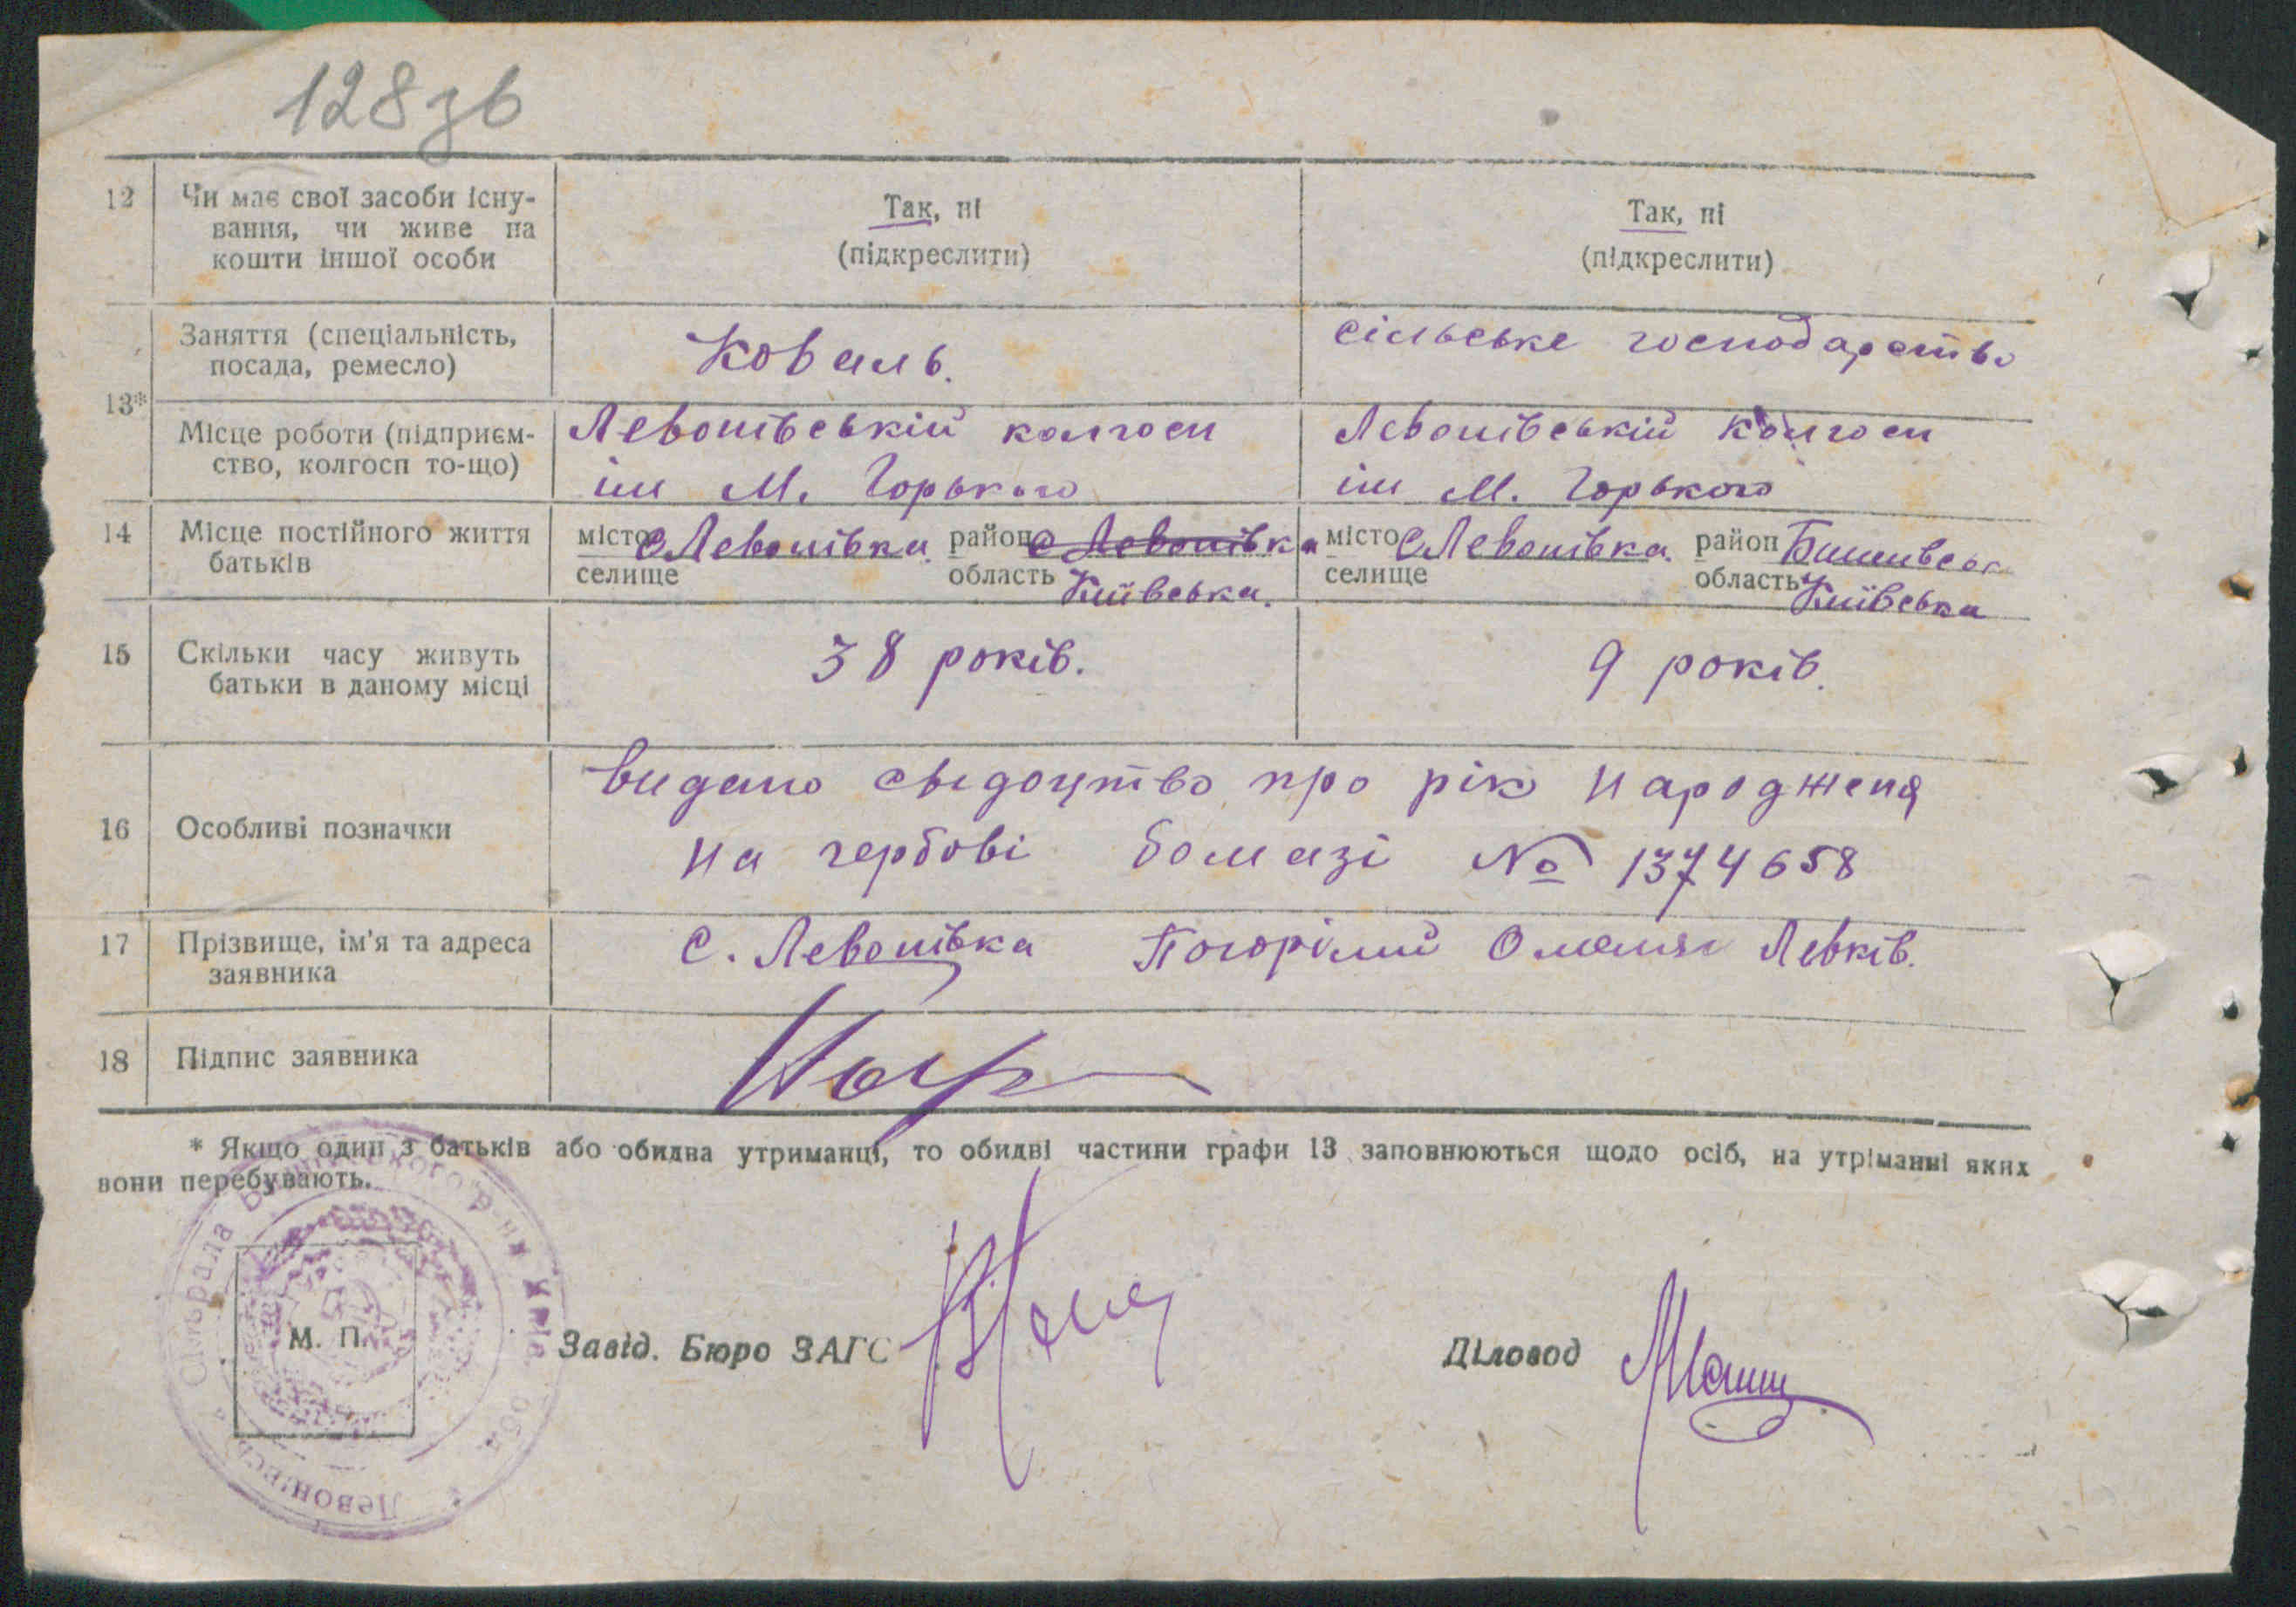 128зв
12 Чи має свої засоби існу-
вання, чи живе на
кошти іншої особи
Так, ні
(підкреслити)
Так, ні
(підкреслити)
13*
Заняття (спеціальність,
посада, ремесло)
Коваль.
сільське господарство
Місце роботи (підприєм-
ство, колгосп то-що)
Левонівській колгосп
ім М. Горького
Левонівській колгосп
ім М. Горького
14 Місце постійного життя
батьків
місто с Левонівка. район с Левонівка
селище область Київська.
місто с Левонівка. район Бишівськ
селище область Київська
15 Скільки часу живуть
батьки в даному місці
38 років.
9 років.
16 Особливі позначки
видано свідоцтво про рік народженя
на гербові бомазі № 1374658
17 Прізвище, ім'я та адреса
заявника
с. Левонівка Погорілий Омелян Левків.
18 Підпис заявника
* Якщо один з батьків або обидва утриманці, то обидві частини графи 13 заповнюються щодо осіб, на утріманні яких
вони перебувають.
М. П.
Завід. Бюро ЗАГС
Діловод